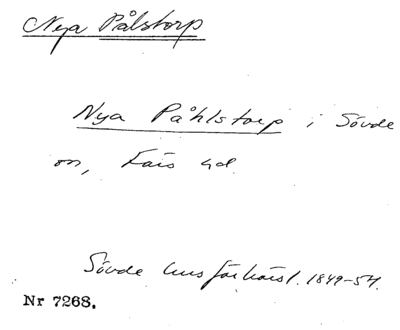 Nya Pålstorp
Nya Påhlstorp i Sövde
sn, Färs hd.
Sövde husförhörsl. 1849-54.
Nr 7268.